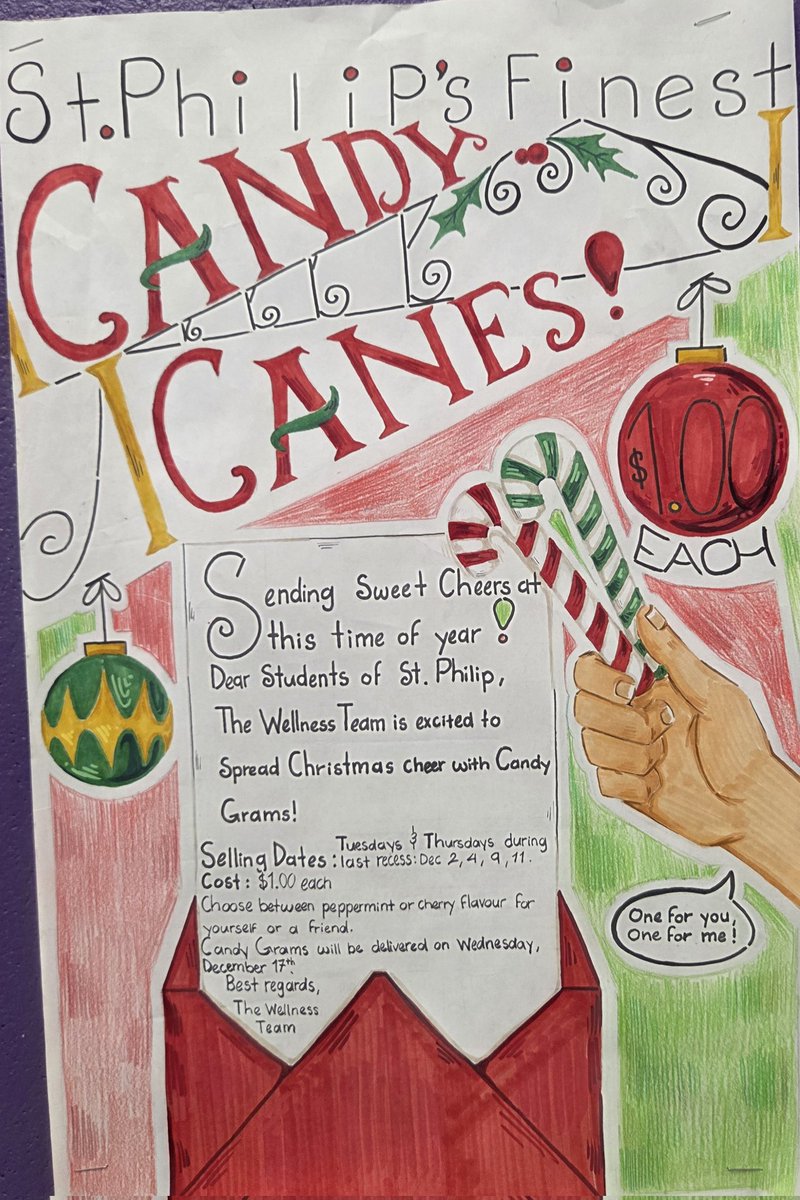 St. Philip's Finest
CANDY
CANES!
$1.00
EACH
Sending Sweet Cheers at
this time of year!
Dear Students of St. Philip,
The Wellness Team is excited to
Spread Christmas cheer with Candy
Grams!
Selling Dates: Tuesdays & Thursdays during
last recess: Dec 2, 4, 9, 11.
Cost: $1.00 each
Choose between peppermint or cherry flavour for
yourself or a friend.
Candy Grams will be delivered on Wednesday,
December 17th.
Best regards,
The Wellness
Team
One for you,
One for me!